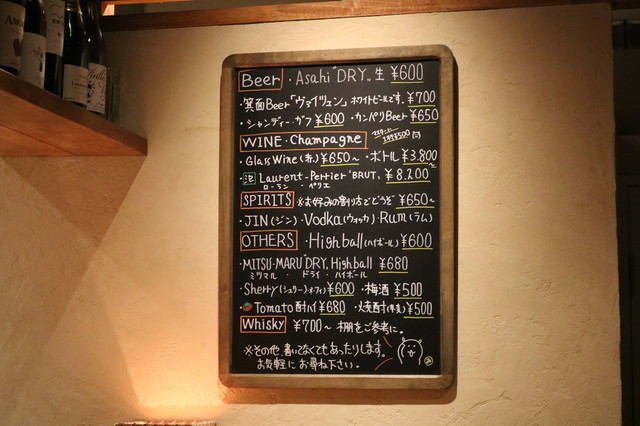 Beer ・Asahi "DRY"生 ¥600
・箕面Beer「ヴァイツェン」ホワイトビールです。¥700
・シャンディーガフ ¥600 ・カンパリBeer ¥650
WINE・Champagne
・Glass Wine(赤) ¥650～ ・ボトル ¥3.800～
・泡 Laurent-Perrier "BRUT" ¥8.200
ローラン・ペリエ
SPIRITS ※お好みの割り方でどうぞ ¥650～
・JIN(ジン)・Vodka(ウォッカ)・Rum(ラム)
OTHERS ・Highball(ハイボール) ¥600
・MITSU-MARU"DRY"Highball ¥680
ミツマル・ドライ・ハイボール
・Sherry(シェリー) ¥600 ・梅酒 ¥500
・Tomato酎ハイ ¥680 ・焼酎(芋麦) ¥500
Whisky ¥700～ 棚をご参考に。
※その他、書いてなくてもあったりします。
お気軽にお尋ね下さい。